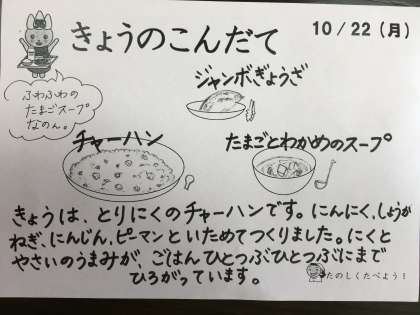 きょうのこんだて
10/22(月)
ジャンボぎょうざ
ふわふわの
たまごスープ
なのん。
チャーハン
たまごとわかめのスープ
きょうは、とりにくのチャーハンです。にんにく、しょうが
ねぎ、にんじん、ピーマンといためてつくりました。にくと
やさいのうまみが、ごはんひとつぶひとつぶにまで
ひろがっています。
たのしくたべよう!